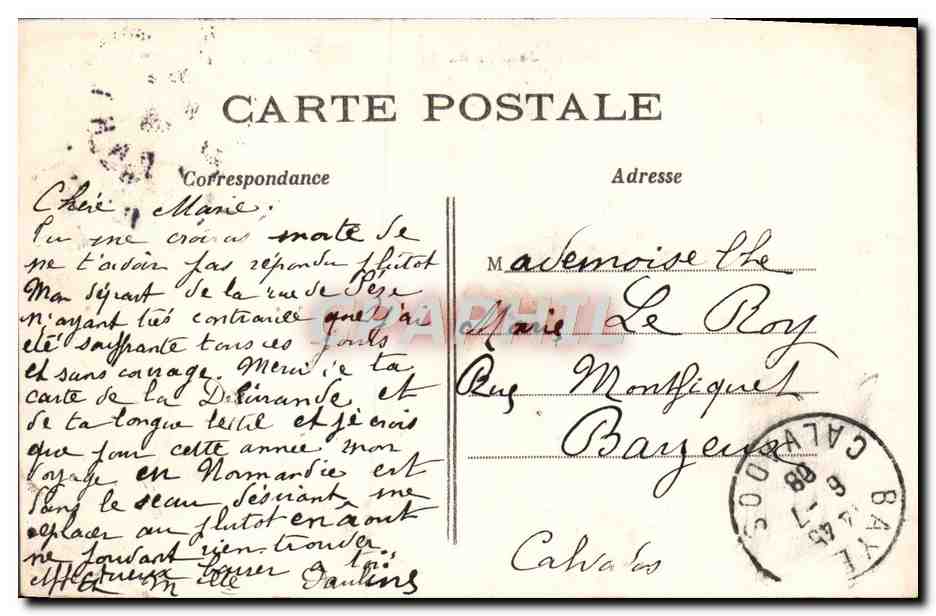 CARTE POSTALE
Correspondance
Adresse
Chère Marie.
Tu me croiras morte de
ne t'avoir pas répondu plutot
Mon départ de la rue de Sèze
n'ayant très contrariée que j'ai
été souffrante tous ces jours
et sans courage. Merci de ta
carte de la Délivrande et
de ta longue lettre et je crois
que pour cette année mon
voyage en Normandie est
dans le seau désirant me
replacer au plutot en août
ne pouvant rien trouver
baiser a toi
Pauline
Mademoiselle
Marie Le Roy
Rue Montfiquet
Bayeux
Calvados
BAYE
CALVADOS
6 -7
08
CPAPHIL